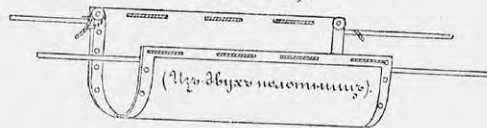 (Изъ двухъ полотнищъ).